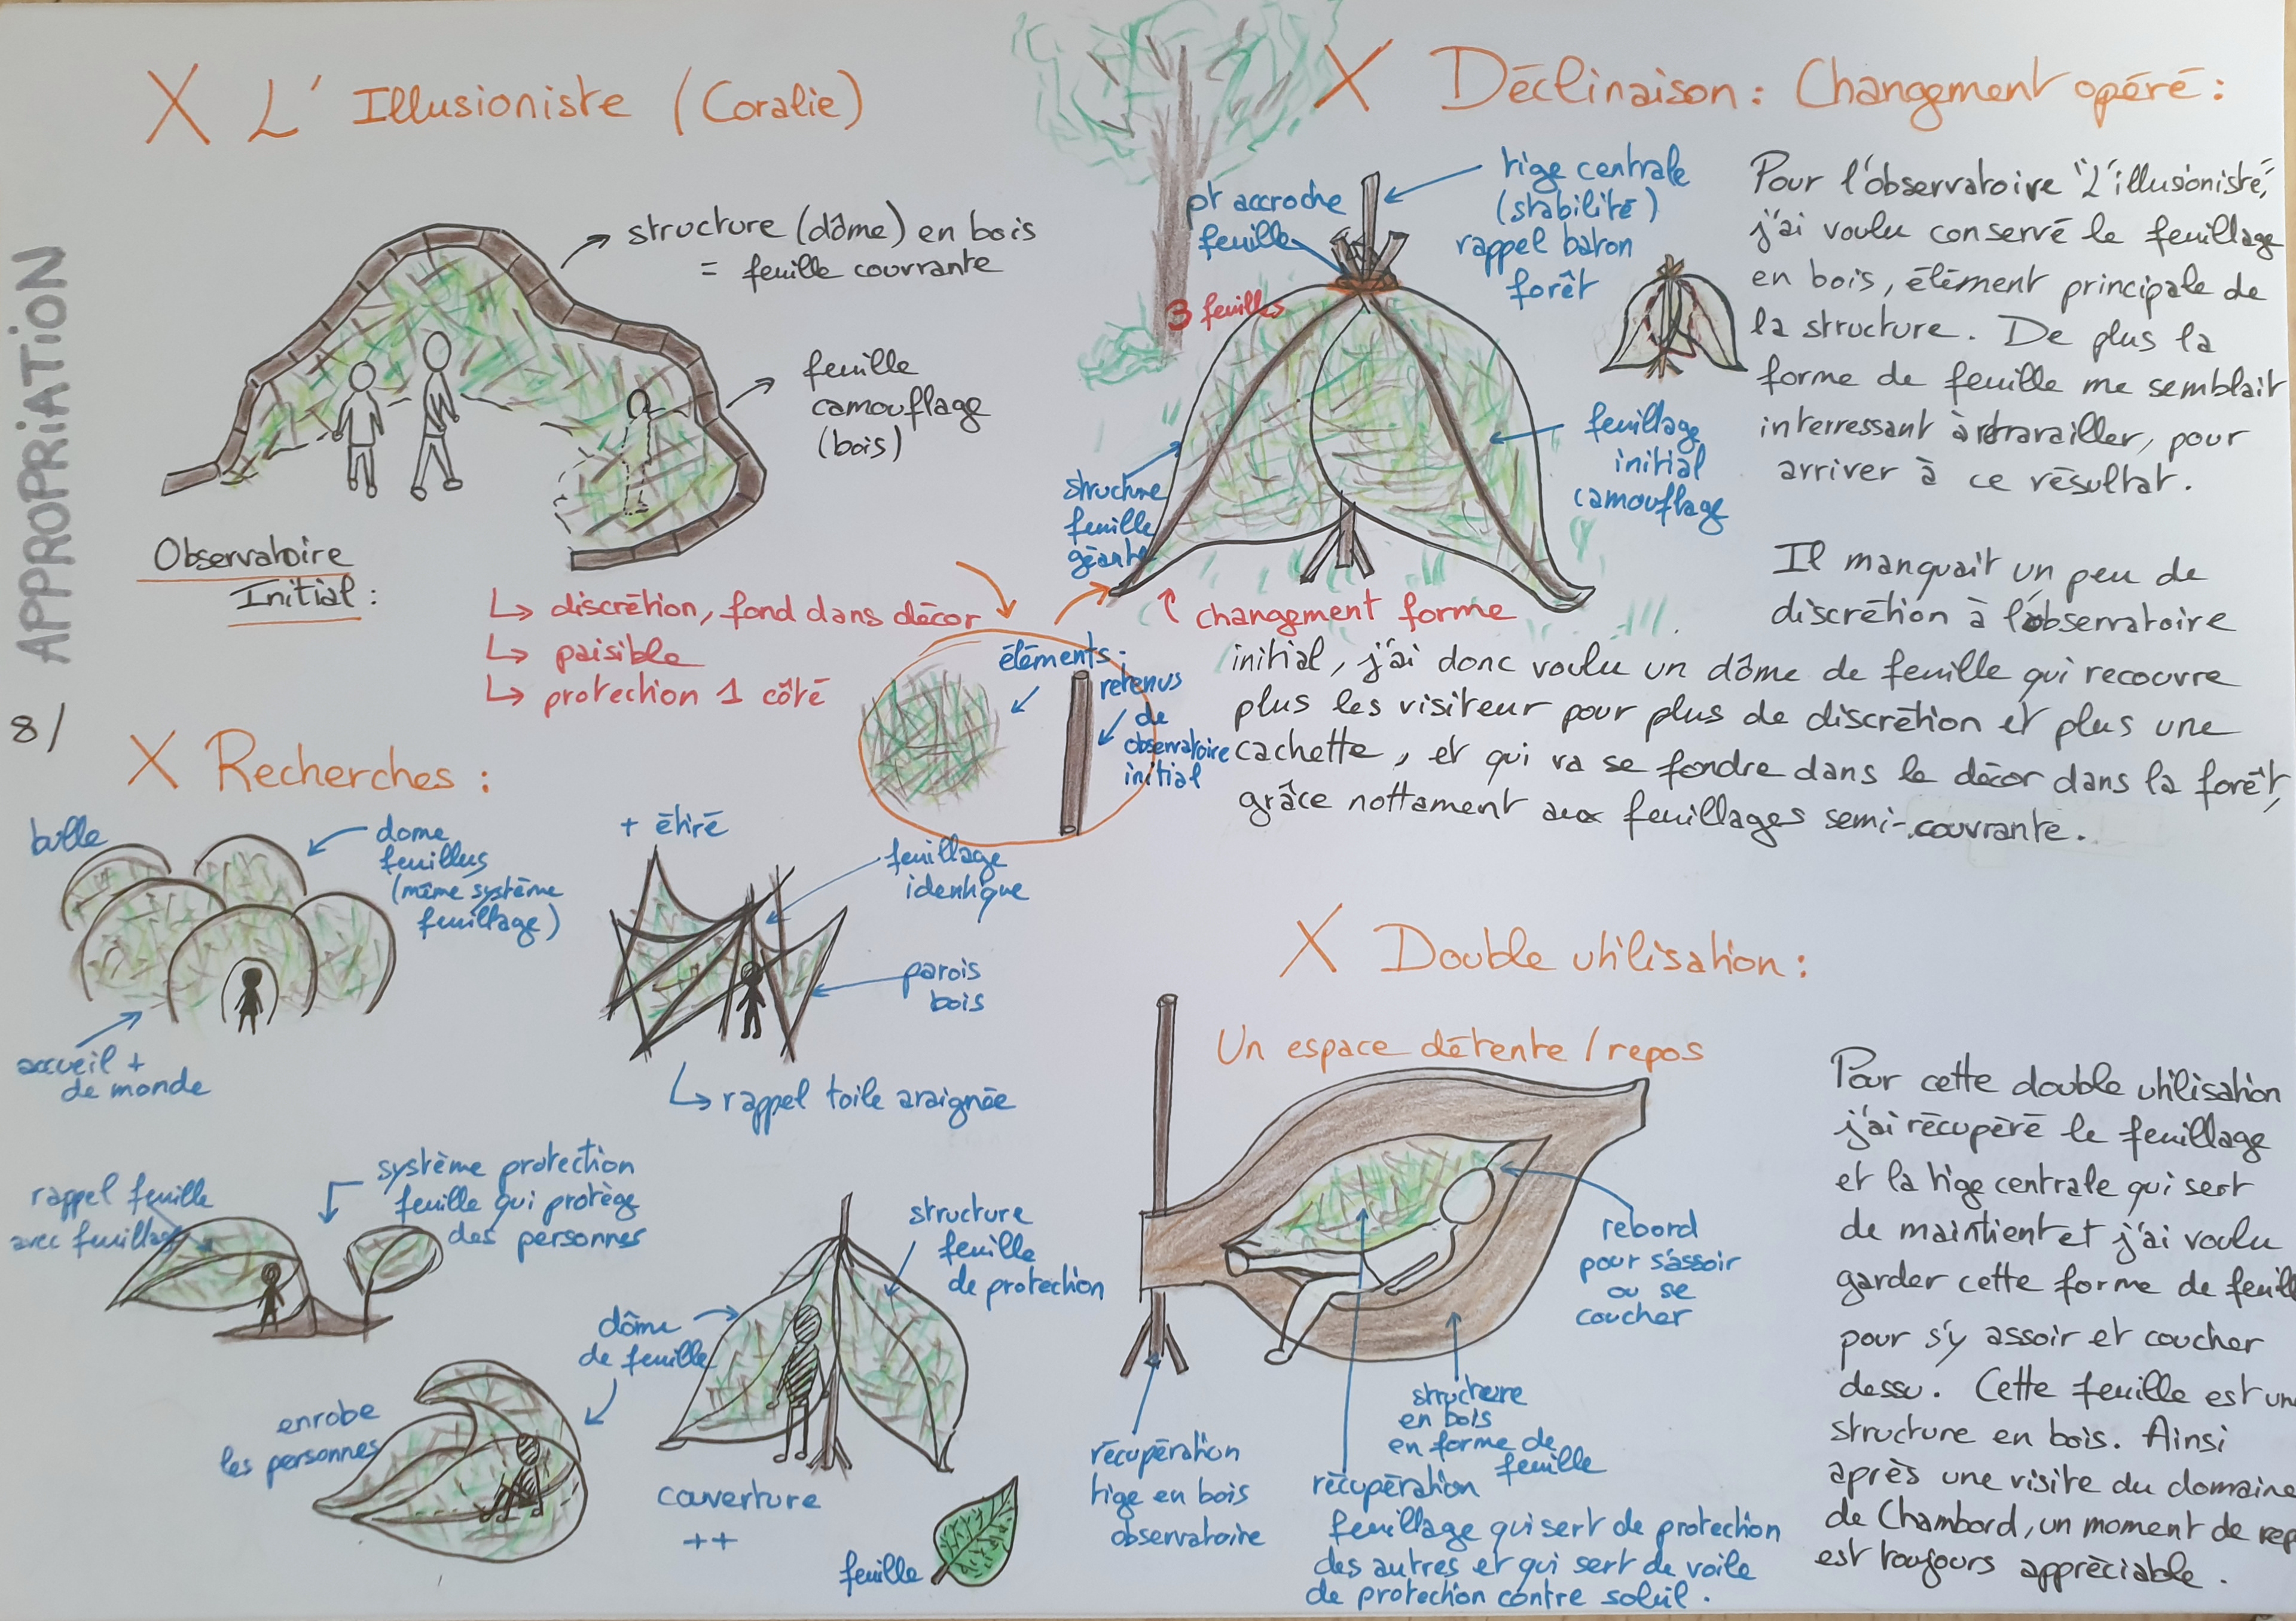 APPROPRIATION
8/
X L'Illusioniste (Coralie)
structure (dôme) en bois
= feuille couvrante
feuille
camouflage
(bois)
Observatoire
Initial :
↳ discrétion, fond dans décor
↳ paisible
↳ protection 1 côté
éléments
retenus
de
observatoire
initial
X Recherches :
bulle
dome
feuillus
(même système
feuillage)
accueil +
de monde
+ étiré
feuillage
identique
parois
bois
↳ rappel toile araignée
rappel feuille
avec feuillage
système protection
feuille qui protège
des personnes
enrobe
les personnes
dôme
de feuille
structure
feuille
de protection
couverture
++
feuille
X Déclinaison : Changement opéré :
pt accroche
feuille
tige centrale
(stabilité)
rappel baton
forêt
3 feuilles
structure
feuille
géante
feuillage
initial
camouflage
changement forme
Pour l'observatoire "L'illusioniste,"
j'ai voulu conservé le feuillage
en bois, élément principale de
la structure. De plus la
forme de feuille me semblait
interressant à retravailler, pour
arriver à ce résultat.
Il manquait un peu de
discrétion à l'observatoire
initial, j'ai donc voulu un dôme de feuille qui recouvre
plus les visiteur pour plus de discrétion et plus une
cachette, et qui va se fondre dans le décor dans la forêt,
grâce nottament aux feuillages semi-couvrante.
X Double utilisation :
Un espace détente / repos
rebord
pour s'assoir
ou se
coucher
récupération
tige en bois
observatoire
structure
en bois
en forme de
feuille
récupération
feuillage qui sert de protection
des autres et qui sert de voile
de protection contre soleil.
Pour cette double utilisation
j'ai récupéré le feuillage
et la tige centrale qui sert
de maintient et j'ai voulu
garder cette forme de feuill
pour s'y assoir et coucher
dessu. Cette feuille est une
structure en bois. Ainsi
après une visite du domaine
de Chambord, un moment de rep
est toujours appréciable.